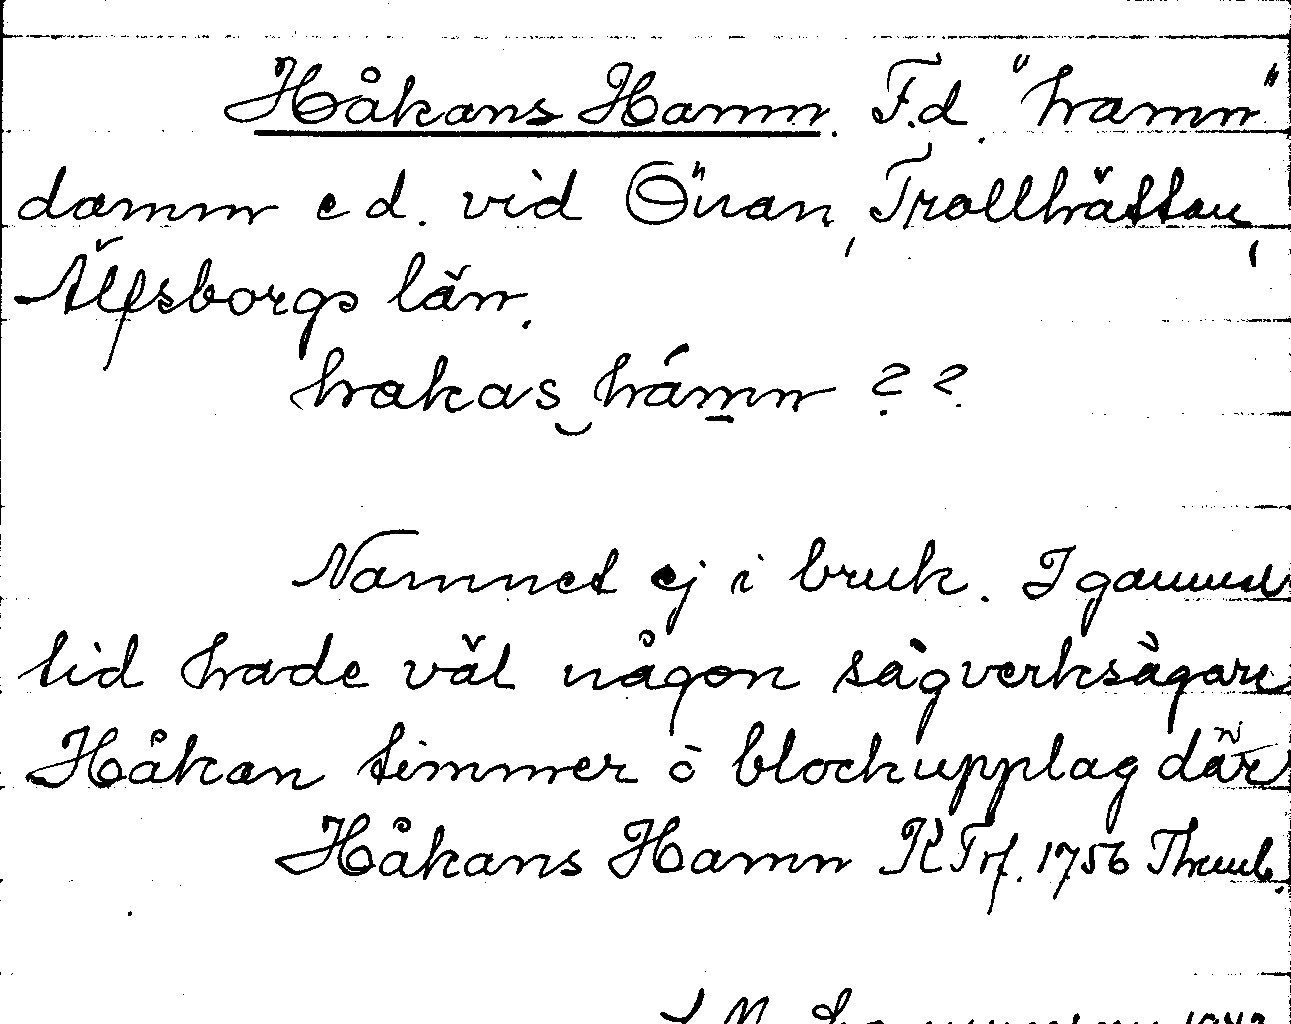 Håkans Hamn. F.d. "hamn"
damm e d. vid Önan, Trollhättan,
Älfsborgs län.
hakas hámn ? ?
Namnet ej i bruk. I gammal
tid hade väl någon sågverksägare
Håkan timmer o blockupplag där
Håkans Hamn K Trf. 1756 Thunb.